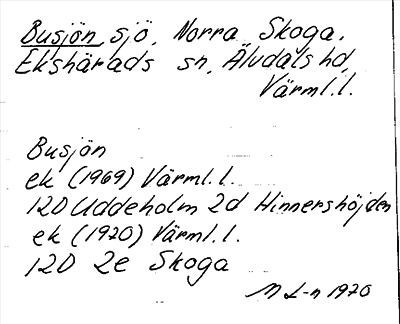 Busjön, sjö, Norra Skoga,
Ekshärads sn, Älvdals hd,
Värml.l.
Busjön
ek (1969) Värml.l.
12D Uddeholm 2d Hinnershöjden
ek (1970) Värml.l.
12D 2e Skoga
M L-n 1970